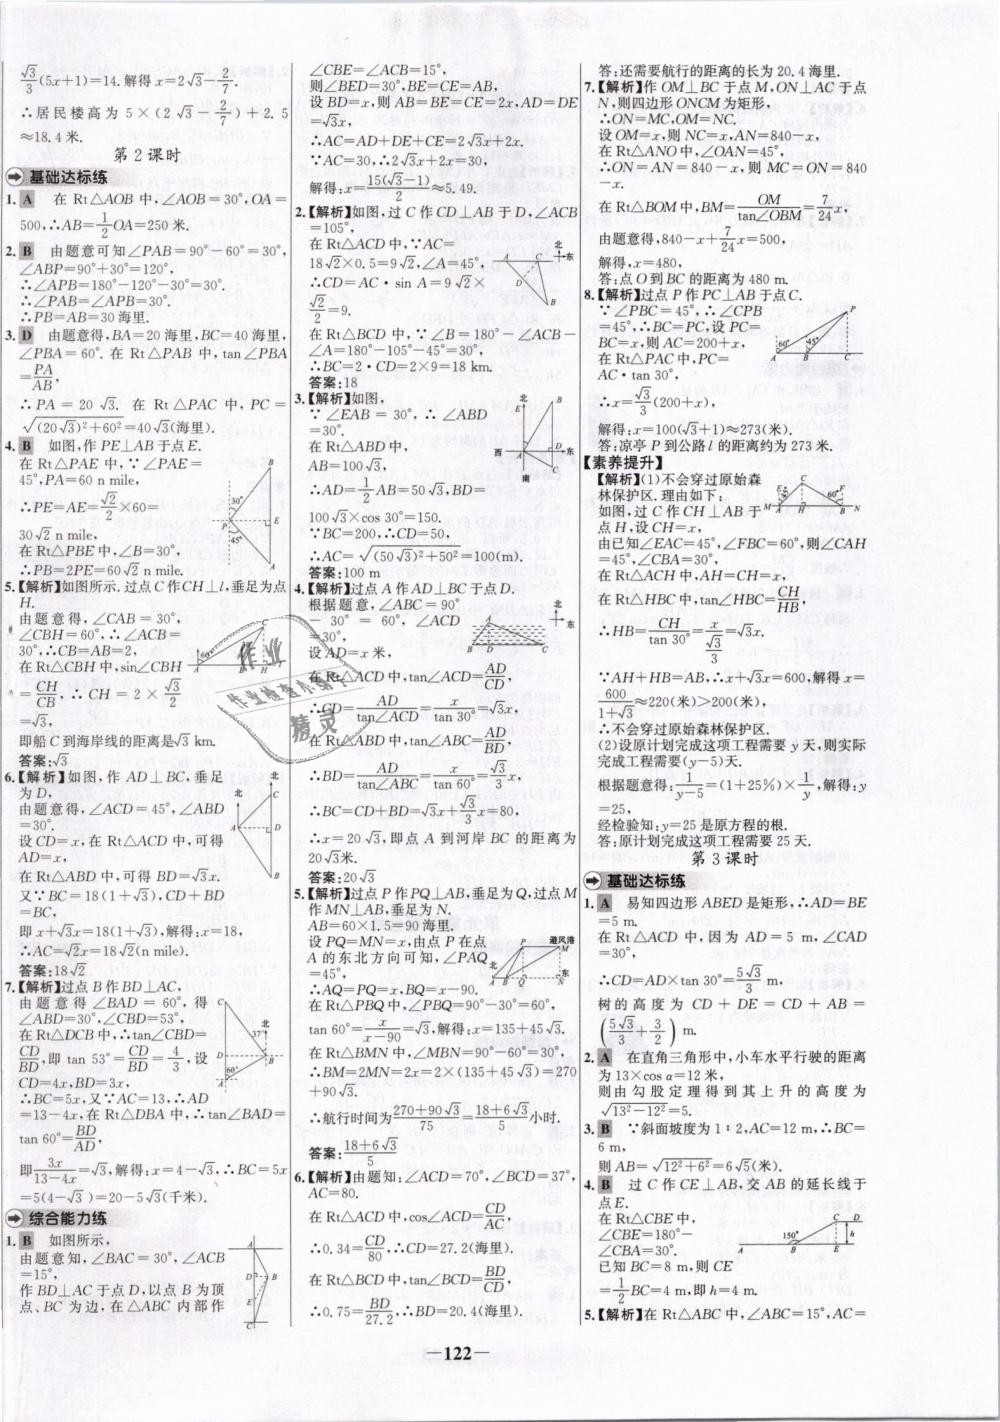 √3/3(5x+1)=14.解得x=2√3−2/7.
∴居民楼高为5×(2√3−2/7)+2.5
≈18.4米.
第2课时
基础达标练
1. A 在Rt△AOB中,∠AOB=30°,OA=
500,∴AB=1/2OA=250米.
2. B 由题意可知∠PAB=90°−60°=30°,
∠ABP=90°+30°=120°,
∴∠APB=180°−120°−30°=30°.
∴∠PAB=∠APB=30°.
∴PB=AB=30海里.
3. D 由题意得,BA=20海里,BC=40海里,
∠PBA=60°.在Rt△PAB中,tan∠PBA
=PA/AB,
∴PA=20√3.在Rt△PAC中,PC=
√((20√3)²+60²)=40√3(海里).
4. B 如图,作PE⊥AB于点E.
在Rt△PAE中,∵∠PAE=
45°,PA=60 n mile,
∴PE=AE=√2/2×60=
30√2 n mile,
在Rt△PBE中,∠B=30°,
∴PB=2PE=60√2 n mile.
5.【解析】如图所示.过点C作CH⊥l,垂足为点
H.
由题意得,∠CAB=30°,
∠CBH=60°,∴∠ACB=
30°,∴CB=AB=2,
在Rt△CBH中,sin∠CBH
=CH/CB,∴CH=2×√3/2
=√3,
即船C到海岸线的距离是√3 km.
答案:√3
6.【解析】如图,作AD⊥BC,垂足
为D,
由题意得,∠ACD=45°,∠ABD
=30°.
设CD=x,在Rt△ACD中,可得
AD=x,
在Rt△ABD中,可得BD=√3x.
又∵BC=18(1+√3),CD+BD
=BC,
即x+√3x=18(1+√3),解得:x=18,
∴AC=√2x=18√2(n mile).
答案:18√2
7.【解析】过点B作BD⊥AC,
由题意得∠BAD=60°,得
∠ABD=30°,∠CBD=53°,
在Rt△DCB中,∴tan∠CBD=
CD/BD,即tan 53°=CD/BD=4/3,设
CD=4x,BD=3x,
∴BC=5x,又∵AC=13,∴AD
=13−4x,在Rt△DBA中,∴tan∠BAD=
tan 60°=BD/AD,
即3x/(13−4x)=√3,解得:x=4−√3,∴BC=5x
=5(4−√3)=20−5√3(千米).
综合能力练
1. B 如图所示,
由题意知,∠BAC=30°,∠ACB
=15°,
作BD⊥AC于点D,以点B为顶
点、BC为边,在△ABC内部作
∠CBE=∠ACB=15°,
则∠BED=30°,BE=CE=AB,
设BD=x,则AB=BE=CE=2x,AD=DE
=√3x,
∴AC=AD+DE+CE=2√3x+2x.
∵AC=30,∴2√3x+2x=30,
解得:x=15(√3−1)/2≈5.49.
2.【解析】如图,过C作CD⊥AB于D,∠ACB
=105°,
在Rt△ACD中,∵AC=
18√2×0.5=9√2,∠A=45°,
∴CD=AC·sin A=9√2×
√2/2=9.
在Rt△BCD中,∵∠B=180°−∠ACB−
∠A=180°−105°−45°=30°,
∴BC=2·CD=2×9=18 km.
答案:18
3.【解析】如图,
∵∠EAB=30°,∴∠ABD
=30°.
在Rt△ABD中,
AB=100√3,
∴AD=1/2AB=50√3,BD=
100√3×cos 30°=150.
∵BC=200,∴CD=50,
∴AC=√((50√3)²+50²)=100(m).
答案:100 m
4.【解析】过点A作AD⊥BC于点D.
根据题意,∠ABC=90°
−30°=60°,∠ACD
=30°,
设AD=x米,
在Rt△ACD中,tan∠ACD=AD/CD,
∴CD=AD/tan∠ACD=x/tan 30°=√3x,
在Rt△ABD中,tan∠ABC=AD/BD,
∴BD=AD/tan∠ABC=x/tan 60°=√3/3x,
∴BC=CD+BD=√3x+√3/3x=80,
∴x=20√3,即点A到河岸BC的距离为
20√3米.
答案:20√3
5.【解析】过点P作PQ⊥AB,垂足为Q,过点M
作MN⊥AB,垂足为N.
AB=60×1.5=90海里.
设PQ=MN=x,由点P在点
A的东北方向可知,∠PAQ
=45°,
∴AQ=PQ=x,BQ=x−90.
在Rt△PBQ中,∠PBQ=90°−30°=60°,
tan 60°=x/(x−90)=√3,解得:x=135+45√3.
在Rt△BMN中,∠MBN=90°−60°=30°,
∴BM=2MN=2x=2×(135+45√3)=270
+90√3.
∴航行时间为(270+90√3)/75=(18+6√3)/5小时.
答案:(18+6√3)/5
6.【解析】由题知:∠ACD=70°,∠BCD=37°,
AC=80.
在Rt△ACD中,cos∠ACD=CD/AC,
∴0.34=CD/80,∴CD=27.2(海里).
在Rt△BCD中,tan∠BCD=BD/CD,
∴0.75=BD/27.2,∴BD=20.4(海里).
答:还需要航行的距离的长为20.4海里.
7.【解析】作OM⊥BC于点M,ON⊥AC于点
N,则四边形ONCM为矩形,
∴ON=MC,OM=NC.
设OM=x,则NC=x,AN=840−x,
在Rt△ANO中,∠OAN=45°,
∴ON=AN=840−x,则MC=ON=840
−x.
在Rt△BOM中,BM=OM/tan∠OBM=7/24x,
由题意得,840−x+7/24x=500,
解得,x=480,
答:点O到BC的距离为480 m.
8.【解析】过点P作PC⊥AB于点C.
∵∠PBC=45°,∴∠CPB
=45°,∴BC=PC,设PC=
BC=x,则AC=200+x,
在Rt△PAC中,PC=
AC·tan 30°,
∴x=√3/3(200+x),
解得:x=100(√3+1)≈273(米).
答:凉亭P到公路l的距离约为273米.
【素养提升】
【解析】(1)不会穿过原始森
林保护区.理由如下:
如图,过C作CH⊥AB于
点H,设CH=x,
由已知∠EAC=45°,∠FBC=60°,则∠CAH
=45°,∠CBA=30°,
在Rt△ACH中,AH=CH=x,
在Rt△HBC中,tan∠HBC=CH/HB,
∴HB=CH/tan 30°=x/(√3/3)=√3x,
∵AH+HB=AB,∴x+√3x=600,解得x=
600/(1+√3)≈220(米)>200(米).
∴不会穿过原始森林保护区.
(2)设原计划完成这项工程需要y天,则实际
完成工程需要(y−5)天.
根据题意得:1/(y−5)=(1+25%)×1/y,解得:y
=25,
经检验知:y=25是原方程的根.
答:原计划完成这项工程需要25天.
第3课时
基础达标练
1. A 易知四边形ABED是矩形,∴AD=BE
=5 m.
在Rt△ACD中,因为AD=5 m,∠CAD
=30°,
∴CD=AD×tan 30°=5√3/3 m,
树的高度为CD+DE=CD+AB=
(5√3/3+3/2) m.
2. A 在直角三角形中,小车水平行驶的距离
为13×cos α=12米,
则由勾股定理得到其上升的高度为
√(13²−12²)=5.
3. B ∵斜面坡度为1∶2,AC=12 m,∴BC=
6 m,
则AB=√(12²+6²)=6√5(米).
4. B 过C作CE⊥AB,交AB的延长线于
点E.
在Rt△CBE中,
∠CBE=180°−
∠CBA=30°.
已知BC=8 m,则CE
=1/2BC=4 m,即h=4 m.
5.【解析】在Rt△ABC中,∠ABC=15°,AC=
—122—